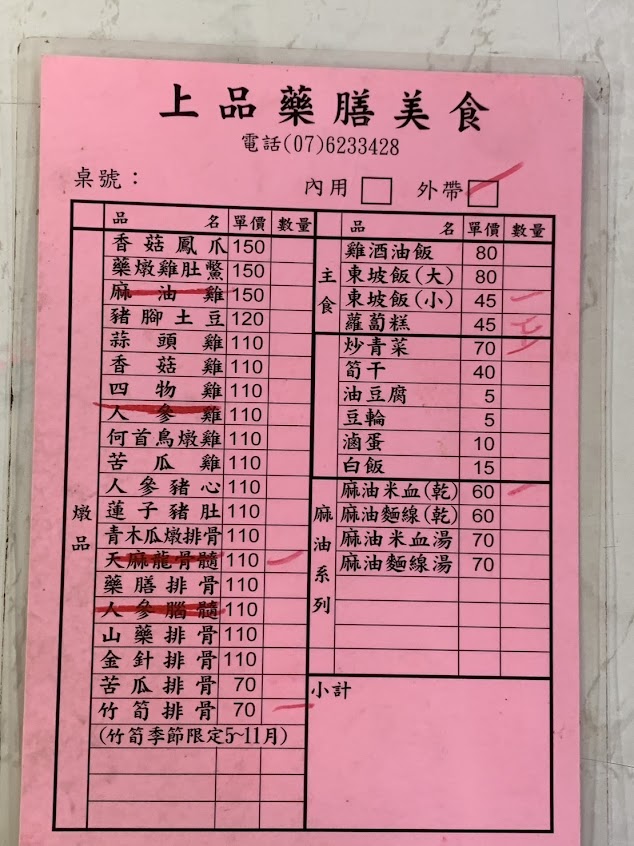 上品藥膳美食
電話(07)6233428
桌號：
內用 □ 外帶 □
品名 單價 數量
燉品
香菇鳳爪 150
藥燉雞肚鱉 150
麻油雞 150
豬腳土豆 120
蒜頭雞 110
香菇雞 110
四物雞 110
人參雞 110
何首烏燉雞 110
苦瓜雞 110
人參豬心 110
蓮子豬肚 110
青木瓜燉排骨 110
天麻龍骨髓 110
藥膳排骨 110
人參腦髓 110
山藥排骨 110
金針排骨 110
苦瓜排骨 70
竹筍排骨 70
(竹筍季節限定5~11月)
品名 單價 數量
主食
雞酒油飯 80
東坡飯(大) 80
東坡飯(小) 45 一
蘿蔔糕 45
炒青菜 70
筍干 40
油豆腐 5
豆輪 5
滷蛋 10
白飯 15
麻油系列
麻油米血(乾) 60
麻油麵線(乾) 60
麻油米血湯 70
麻油麵線湯 70
小計